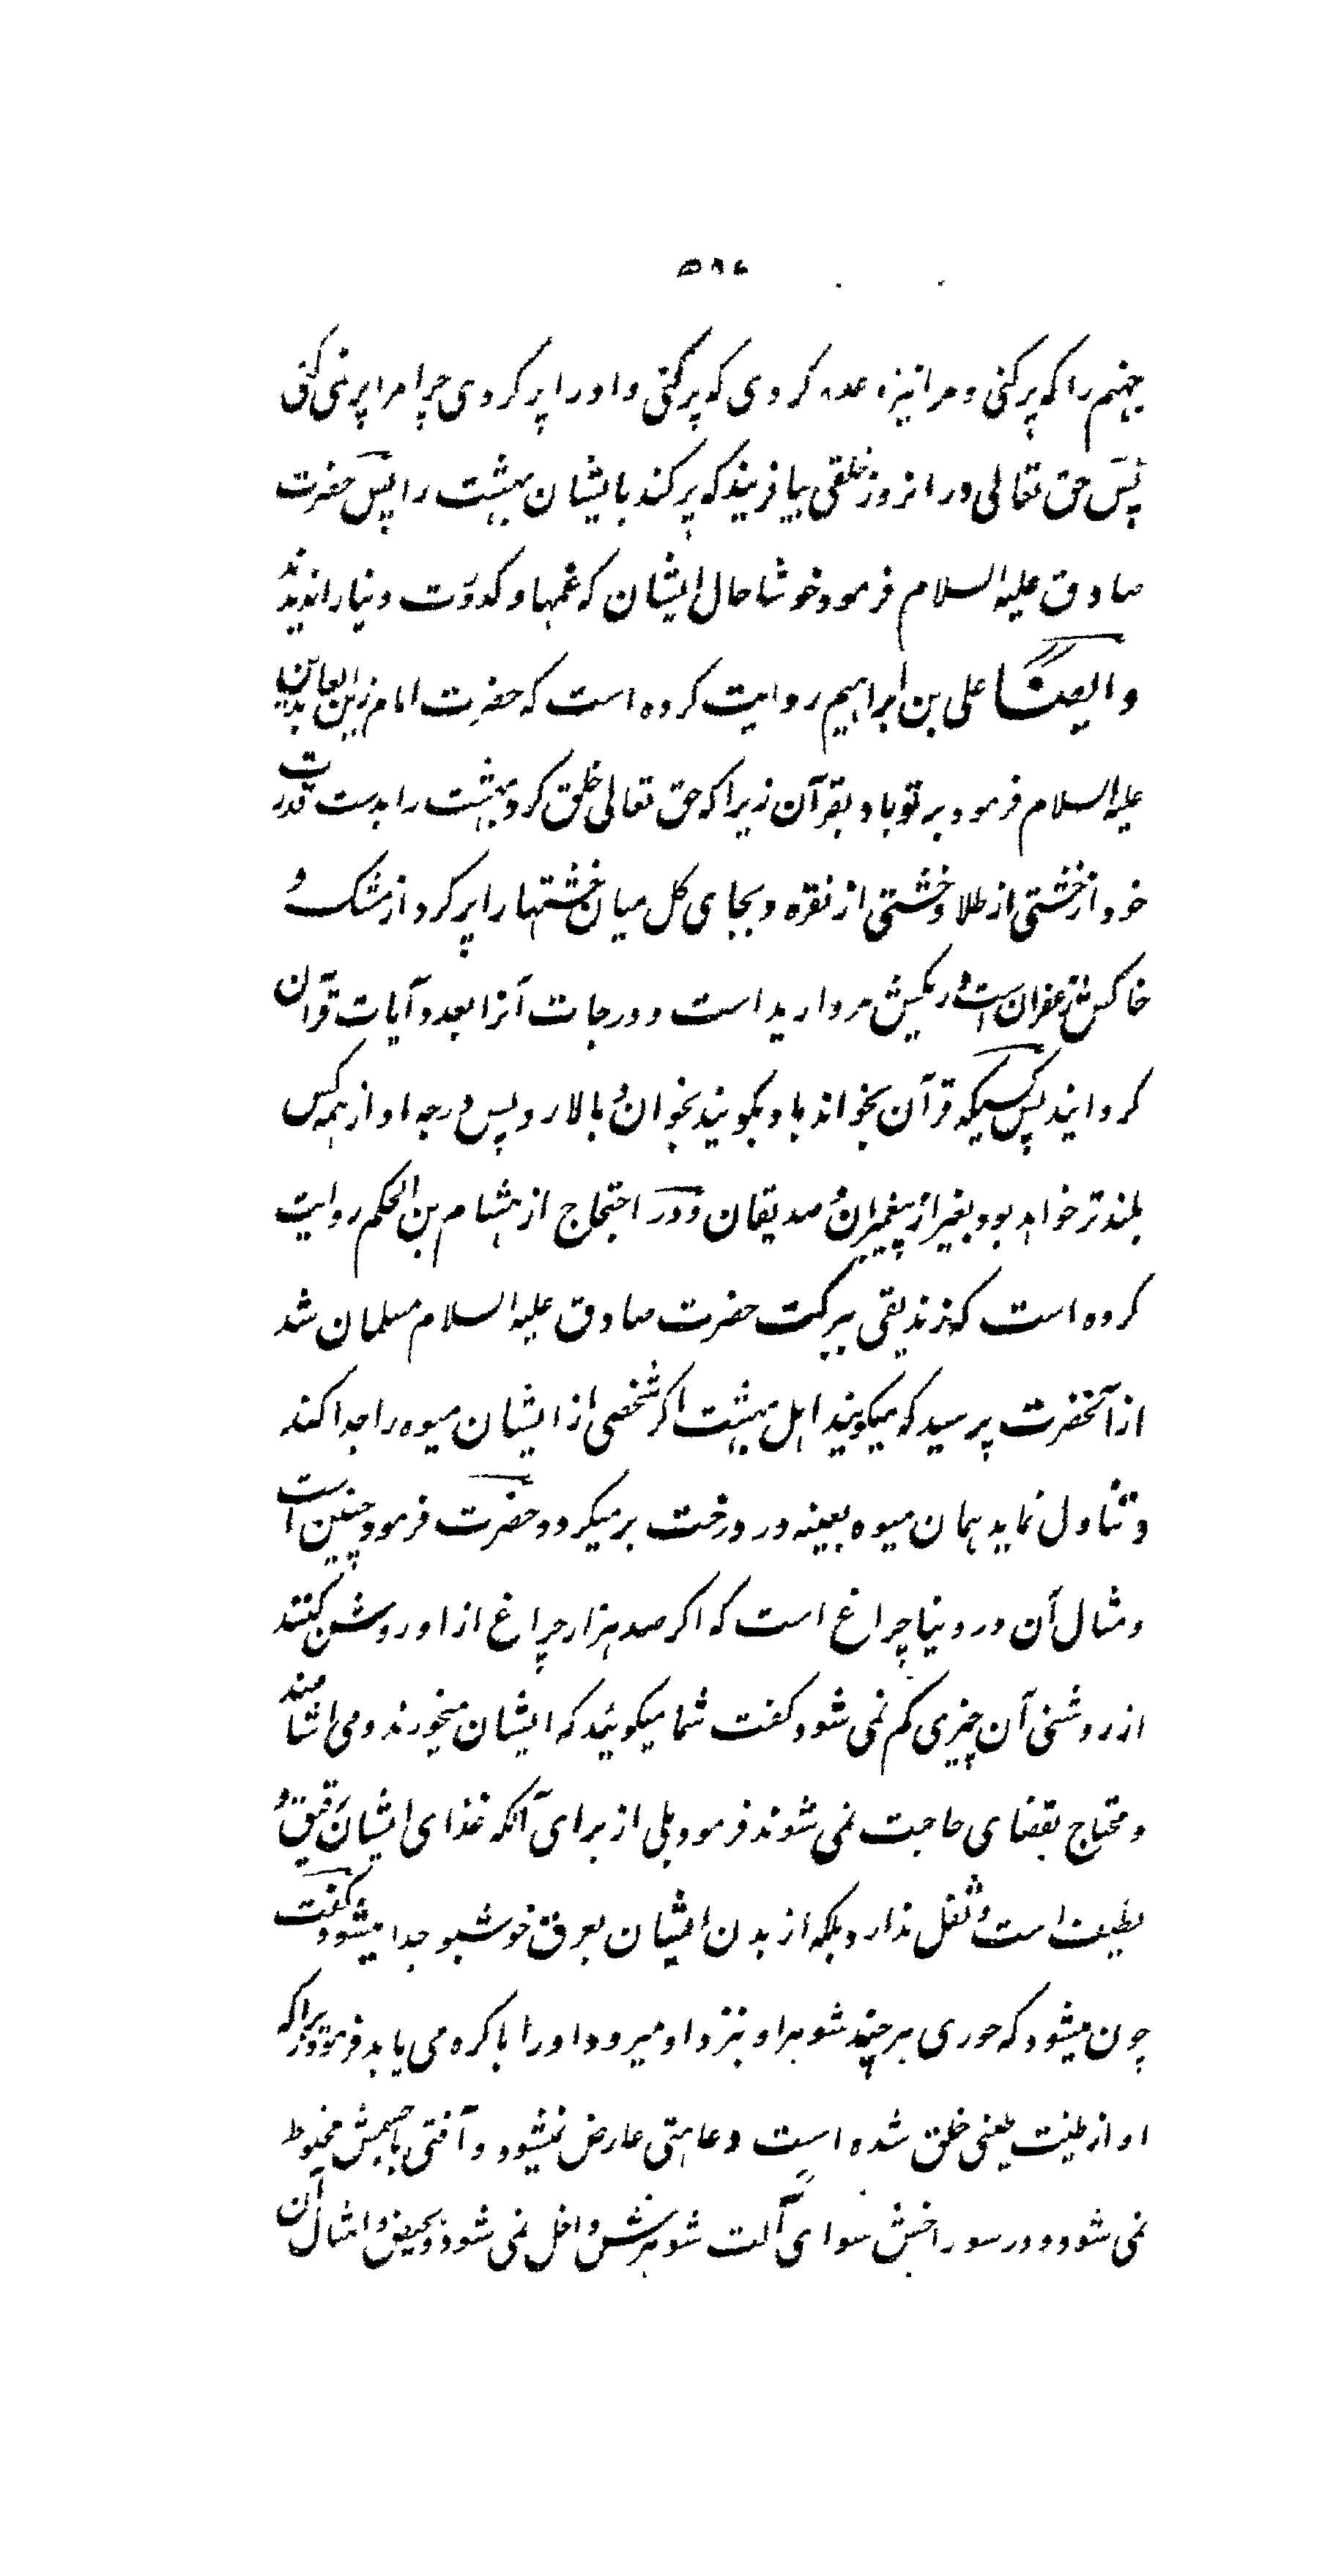 ۵۹۶
جهنم را که پر کنی و مرا نیز وعده کردی که پر کنی و او را پر کردی چرا مرا پر نمی کنی
پس حق تعالی در انروز خلقی بیافریند که پر کند بایشان بهشت را پس حضرت
صادق علیه السلام فرمود خوشا حال ایشان که غمها و کدورت دنیا را ندیدند
و ایضًا علی بن ابراهیم روایت کرده است که حضرت امام زین العابدین
علیه السلام فرمود بر تو باد بقرآن زیرا که حق تعالی خلق کرد بهشت را بدست قدرت
خود از خشتی از طلا و خشتی از نقره و بجای کل میان خشتها را پر کرد از مشک و
خاکش زعفران است و ریکش مروارید است و درجات آنرا بعدد آیات قرآن
کردانید پس کسیکه قرآن بخواند باو بکویند بخوان و بالا رو پس درجه او از همه کس
بلندتر خواهد بود بغیر از پیغمبران و صدیقان و در احتجاج از هشام بن الحکم روایت
کرده است که زندیقی ببرکت حضرت صادق علیه السلام مسلمان شد
از آنحضرت پرسید که میکویند اهل بهشت اکر شخصی از ایشان میوه را جدا کند
و تناول نماید همان میوه بعینه در درخت برمیکردد حضرت فرمود چنین است
و مثال آن در دنیا چراغ است که اکر صد هزار چراغ از او روشن کنند
از روشنی آن چیزی کم نمی شود کفت شما میکوئید که ایشان میخورند و می اشامند
و محتاج بقضای حاجت نمی شوند فرمود بلی از برای آنکه غذای ایشان رقیق و
لطیف است و ثفل ندارد بلکه از بدن ایشان بعرق خوشبو جدا میشود کفت
چون میشود که حوری هر چند شوهر او بنزد او میرود او را باکره می یابد فرمود زیرا که
او از طینت طیبی خلق شده است و عاهتی عارض نمیشود و آفتی با جسمش مخلوط
نمی شود و در سوراخش سوای آلت شوهرش داخل نمی شود و بحیض و امثال آن